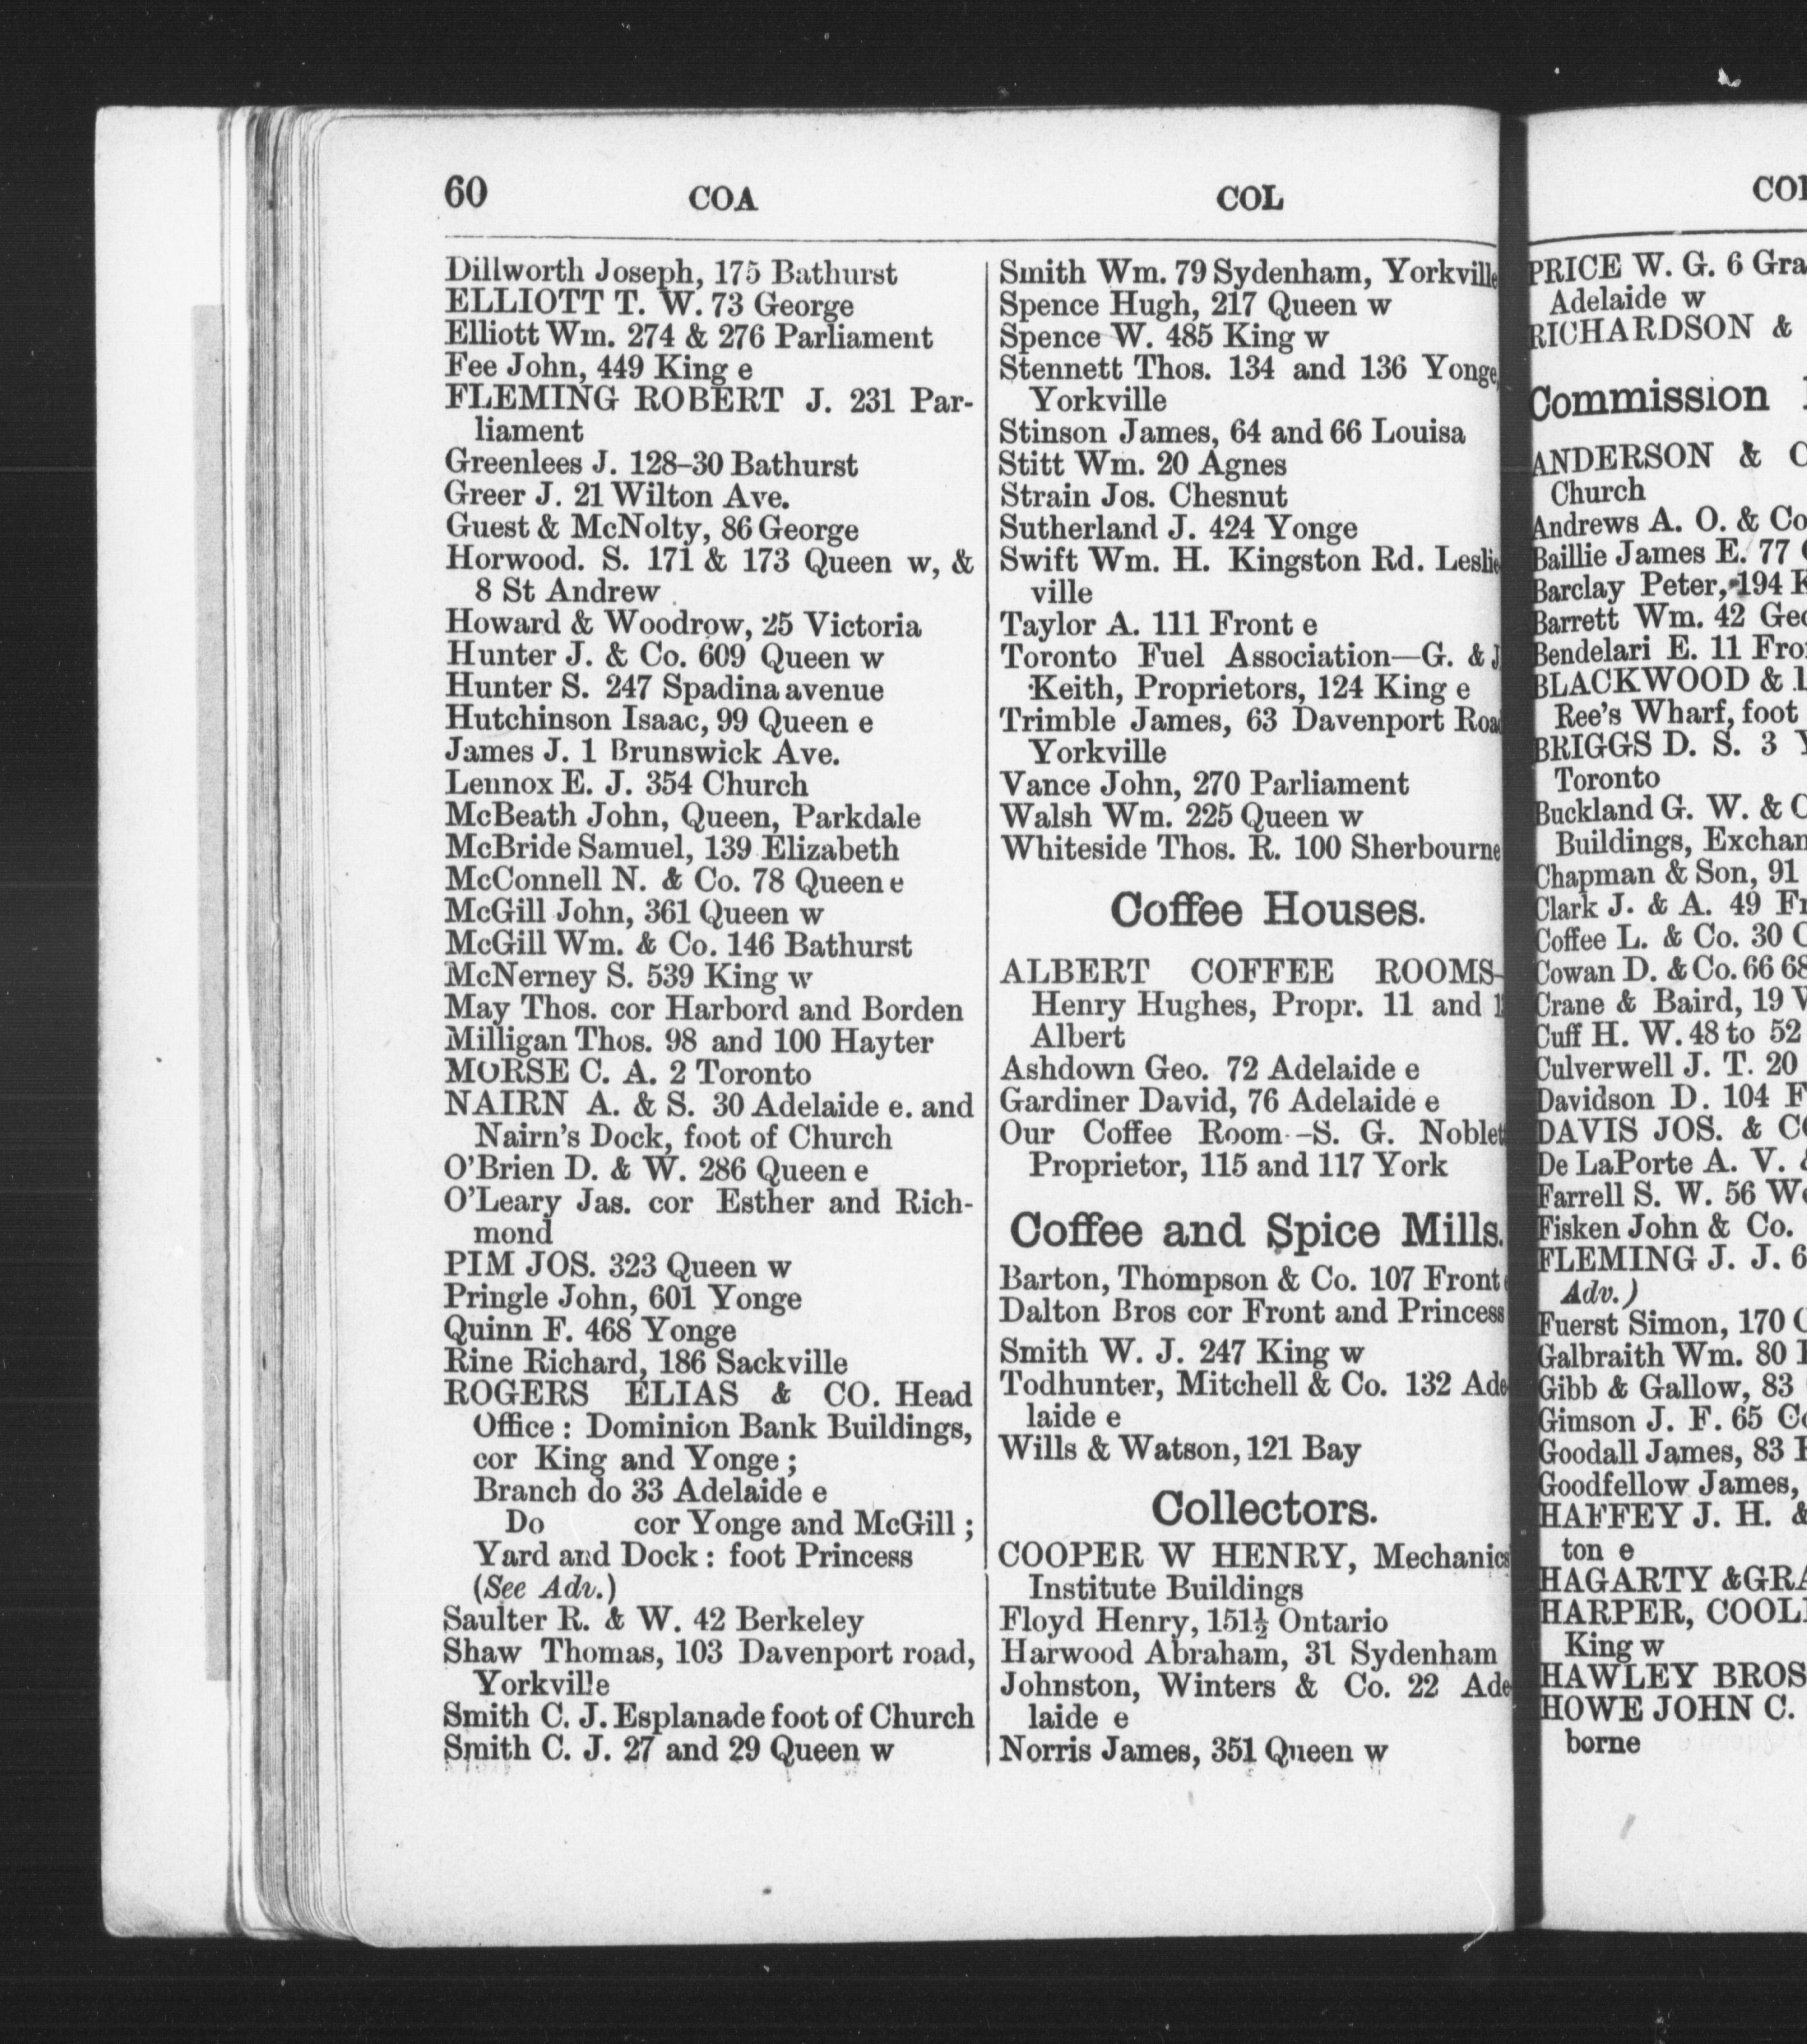 60 COA COL
Dillworth Joseph, 175 Bathurst
ELLIOTT T. W. 73 George
Elliott Wm. 274 & 276 Parliament
Fee John, 449 King e
FLEMING ROBERT J. 231 Par-
liament
Greenlees J. 128-30 Bathurst
Greer J. 21 Wilton Ave.
Guest & McNolty, 86 George
Horwood. S. 171 & 173 Queen w, &
8 St Andrew
Howard & Woodrow, 25 Victoria
Hunter J. & Co. 609 Queen w
Hunter S. 247 Spadina avenue
Hutchinson Isaac, 99 Queen e
James J. 1 Brunswick Ave.
Lennox E. J. 354 Church
McBeath John, Queen, Parkdale
McBride Samuel, 139 Elizabeth
McConnell N. & Co. 78 Queen e
McGill John, 361 Queen w
McGill Wm. & Co. 146 Bathurst
McNerney S. 539 King w
May Thos. cor Harbord and Borden
Milligan Thos. 98 and 100 Hayter
MORSE C. A. 2 Toronto
NAIRN A. & S. 30 Adelaide e. and
Nairn's Dock, foot of Church
O'Brien D. & W. 286 Queen e
O'Leary Jas. cor Esther and Rich-
mond
PIM JOS. 323 Queen w
Pringle John, 601 Yonge
Quinn F. 468 Yonge
Rine Richard, 186 Sackville
ROGERS ELIAS & CO. Head
Office : Dominion Bank Buildings,
cor King and Yonge ;
Branch do 33 Adelaide e
Do cor Yonge and McGill ;
Yard and Dock : foot Princess
(See Adv.)
Saulter R. & W. 42 Berkeley
Shaw Thomas, 103 Davenport road,
Yorkville
Smith C. J. Esplanade foot of Church
Smith C. J. 27 and 29 Queen w
Smith Wm. 79 Sydenham, Yorkville
Spence Hugh, 217 Queen w
Spence W. 485 King w
Stennett Thos. 134 and 136 Yonge,
Yorkville
Stinson James, 64 and 66 Louisa
Stitt Wm. 20 Agnes
Strain Jos. Chesnut
Sutherland J. 424 Yonge
Swift Wm. H. Kingston Rd. Leslie
ville
Taylor A. 111 Front e
Toronto Fuel Association—G. & J
Keith, Proprietors, 124 King e
Trimble James, 63 Davenport Road
Yorkville
Vance John, 270 Parliament
Walsh Wm. 225 Queen w
Whiteside Thos. R. 100 Sherbourne
Coffee Houses.
ALBERT COFFEE ROOMS-
Henry Hughes, Propr. 11 and
Albert
Ashdown Geo. 72 Adelaide e
Gardiner David, 76 Adelaide e
Our Coffee Room--S. G. Noblett
Proprietor, 115 and 117 York
Coffee and Spice Mills.
Barton, Thompson & Co. 107 Front
Dalton Bros cor Front and Princess
Smith W. J. 247 King w
Todhunter, Mitchell & Co. 132 Ade
laide e
Wills & Watson, 121 Bay
Collectors.
COOPER W HENRY, Mechanics
Institute Buildings
Floyd Henry, 151½ Ontario
Harwood Abraham, 31 Sydenham
Johnston, Winters & Co. 22 Ade
laide e
Norris James, 351 Queen w
PRICE W. G. 6 Gra
Adelaide w
RICHARDSON &
Commission
ANDERSON & C
Church
Andrews A. O. & Co
Baillie James E. 77
Barclay Peter, 194 K
Barrett Wm. 42 Geo
Bendelari E. 11 Fro
BLACKWOOD &
Ree's Wharf, foot
BRIGGS D. S. 3 Y
Toronto
Buckland G. W. & C
Buildings, Exchan
Chapman & Son, 91
Clark J. & A. 49 Fr
Coffee L. & Co. 30 C
Cowan D. & Co. 66 68
Crane & Baird, 19
Cuff H. W. 48 to 52
Culverwell J. T. 20
Davidson D. 104 F
DAVIS JOS. & CO
De LaPorte A. V. &
Farrell S. W. 56 We
Fisken John & Co.
FLEMING J. J. 6
Adv.)
Fuerst Simon, 170 C
Galbraith Wm. 80
Gibb & Gallow, 83
Gimson J. F. 65 Co
Goodall James, 83 F
Goodfellow James,
HAFFEY J. H. &
ton e
HAGARTY &GRA
HARPER, COOL
King w
HAWLEY BROS
HOWE JOHN C.
borne